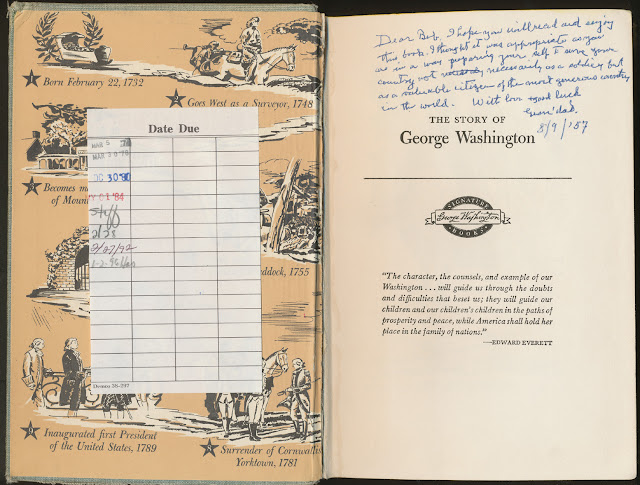 Born February 22, 1732
Goes West as a Surveyor, 1748
Becomes
of Moun
ddock, 1755
Inaugurated first President
of the United States, 1789
Surrender of Cornwallis
Yorktown, 1781
Date Due
MAR 5
OC 30 '80
OC 1 '84
Staff
2/28
2/27/92
Demco 38-297
Dear Bif, I hope you will read and enjoy
this book. I thought it was appropriate as you
are in a way preparing your self to serve your
country not necessarily as a soldier but
as a valuable citizen of the most generous country
in the world. With love & good luck
dad.
8/9/'57
THE STORY OF
George Washington
SIGNATURE
George Washington
BOOKS
"The character, the counsels, and example of our
Washington . . . will guide us through the doubts
and difficulties that beset us; they will guide our
children and our children's children in the paths of
prosperity and peace, while America shall hold her
place in the family of nations."
—EDWARD EVERETT